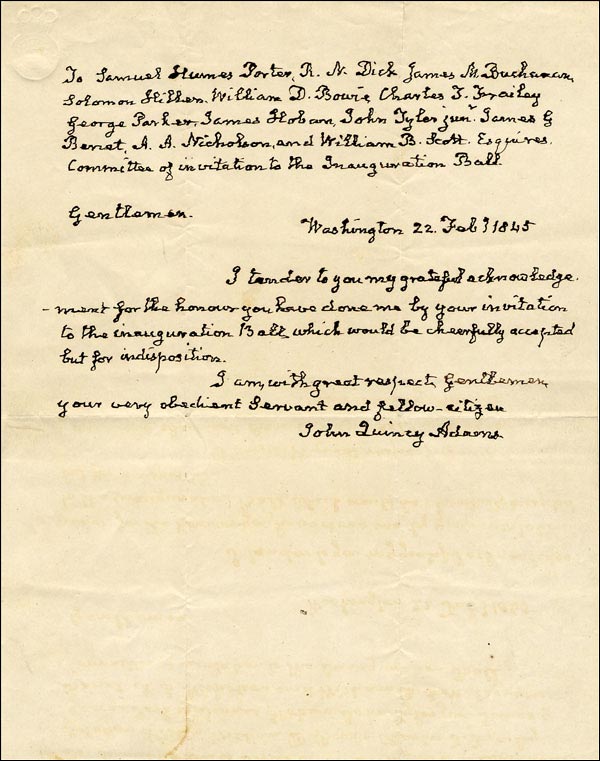 To Samuel Humes Porter, R. N. Dick James M. Buchanan,
Solomon Hillen, William D. Bowie, Charles F. Frailey
George Parker, James Hoban, John Tyler junr. James G
Benet, A. A. Nicholson, and William B. Scott. Esquires.
Committee of invitation to the Inauguration Ball.
Gentlemen.
Washington 22. Feby 1845
I tender to you my grateful acknowledge.
-ment for the honour you have done me by your invitation
to the inauguration Ball, which would be cheerfully accepted
but for indisposition.
I am, with great respect, Gentlemen,
your very obedient Servant and fellow-citizen
John Quincy Adams